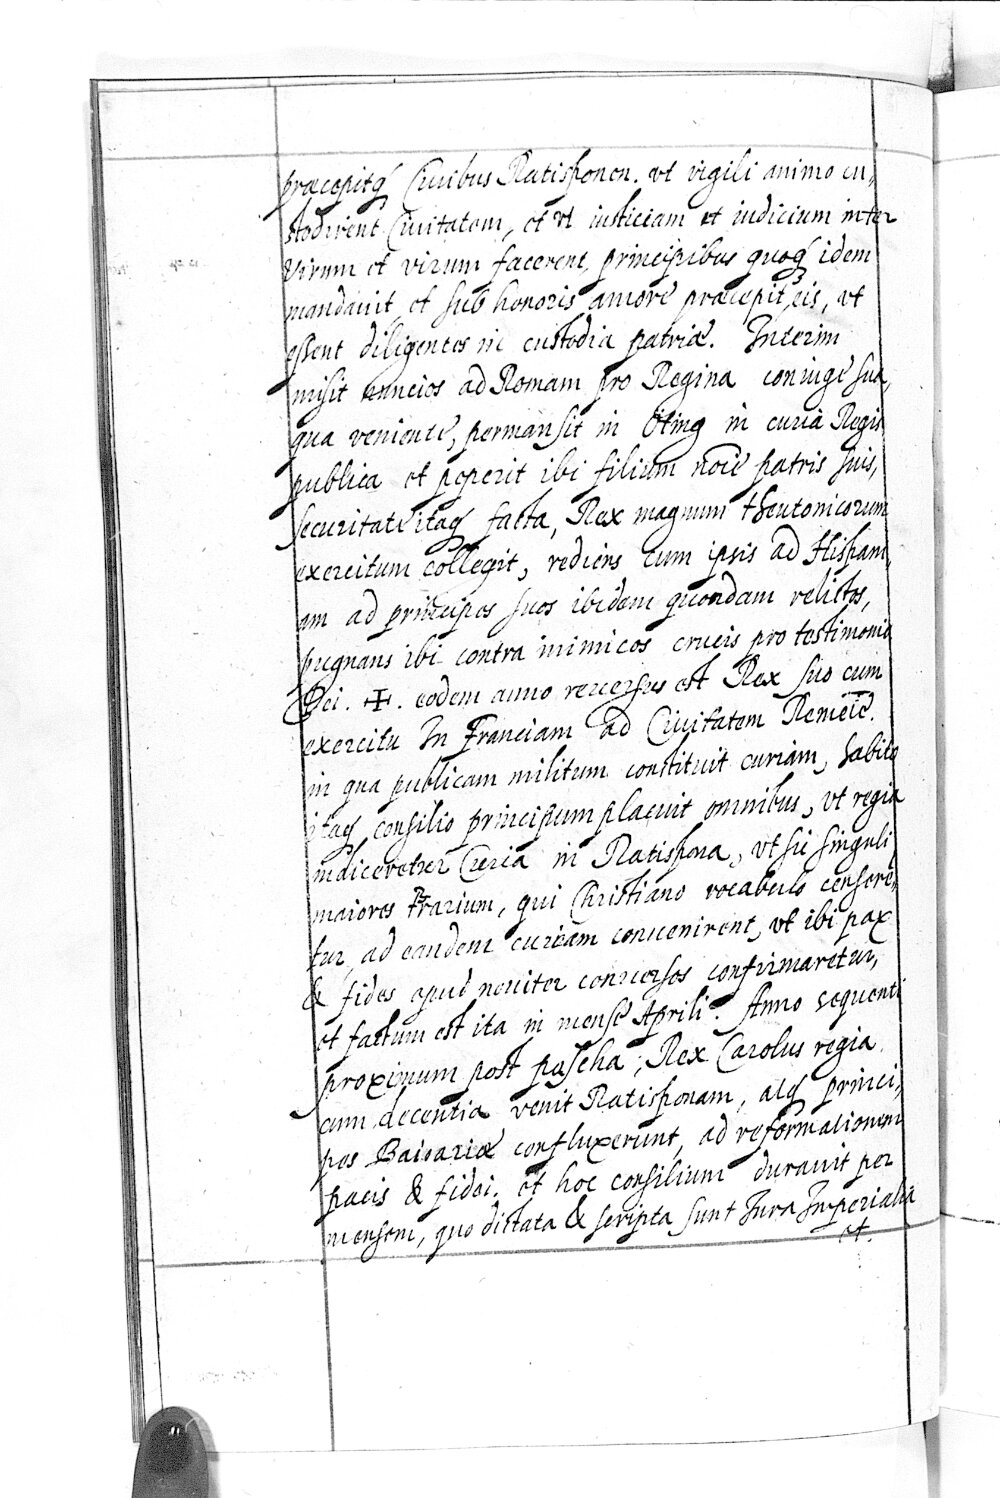 præcepitq Ciuibus Ratisponen. vt vigili animo cu,
stodirent Ciuitatem, et vt iusticiam et iudicium inter
virum et virum facerent, principibus quoq idem
mandauit, et sub honoris amore præcepit eis, vt
essent diligentes in custodia patriæ. Interim
misit nuncios ad Romam pro Regina coniuge sua,
qua veniente, permansit in Oting in curia Regis
publica et peperit ibi filium noīe patris suis,
securitate itaq facta, Rex magnum theutonicorum
exercitum collegit, rediens cum ipsis ad Hispani,
am ad principes suos ibidem quondam relictos,
pugnans ibi contra inimicos crucis pro testimonio
Dei. ✠. eodem anno reuersus est Rex suo cum
exercitu In Franciam ad Ciuitatem Remeñ.
in qua publicam militum constituit curiam, habito
itaq consilio principum placuit omnibus, vt regia
indiceretur Curia in Ratispona, vt sic singuli
maiores trarium, qui Christiano vocabulo censeren,
tur, ad eandem curiam conuenirent, vt ibi pax
& fides apud nouiter conuersos confirmaretur,
et factum est ita in mense Aprili. Anno sequenti
proximum post pascha, Rex Carolus regia
cum decentia venit Ratisponam, alq princi,
pes Baioariæ confluxerunt, ad reformationem
pacis & fidei. et hoc consilium durauit per
mensem, quo dictata & scripta sunt Jura Imperialia
et.